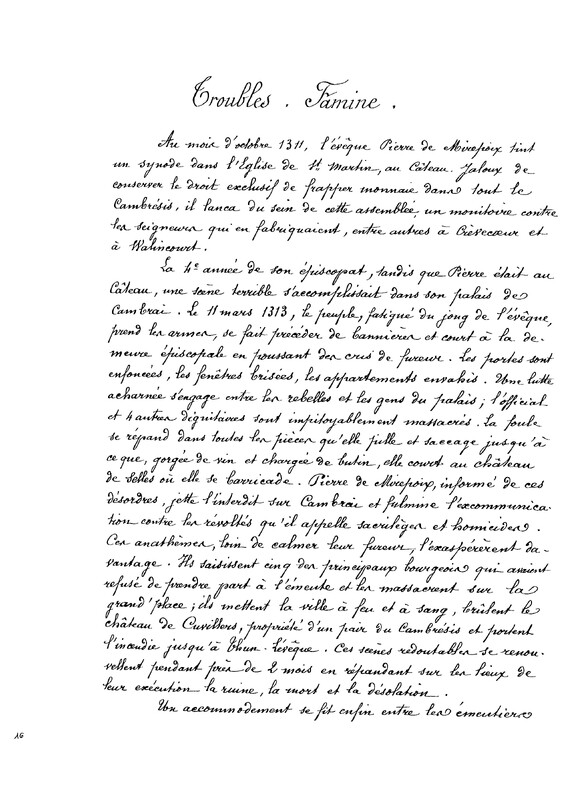 Troubles . Famine .
Au mois d'octobre 1311, l'évêque Pierre de Mirepoix tint
un synode dans l'Eglise de St Martin, au Câteau. Jaloux de
conserver le droit exclusif de frapper monnaie dans tout le
Cambrésis, il lança du sein de cette assemblée, un monitoire contre
les seigneurs qui en fabriquaient, entre autres à Crèvecœur et
à Walincourt.
La 4e année de son épiscopat, tandis que Pierre était au
Câteau, une scène terrible s'accomplissait dans son palais de
Cambrai. Le 11 mars 1313, le peuple, fatigué du joug de l'évêque,
prend les armes, se fait précéder de bannières et court à la de-
meure épiscopale en poussant des cris de fureur. Les portes sont
enfoncées, les fenêtres brisées, les appartements envahis. Une lutte
acharnée s'engage entre les rebelles et les gens du palais; l'official
et 4 autres dignitaires sont impitoyablement massacrés. La foule
se répand dans toutes les pièces qu'elle pille et saccage jusqu'à
ce que, gorgée de vin et chargée de butin, elle court au château
de Selles où elle se barricade. Pierre de Mirepoix, informé de ces
désordres, jette l'interdit sur Cambrai et fulmine l'excommunica-
tion contre les révoltés qu'il appelle sacrilèges et homicides.
Ces anathèmes, loin de calmer leur fureur, l'exaspérèrent da-
vantage. Ils saisissent cinq des principaux bourgeois qui avaient
refusé de prendre part à l'émeute et les massacrent sur la
grand'place; ils mettent la ville à feu et à sang, brûlent le
château de Cuvillers, propriété d'un pair du Cambrésis et portent
l'incendie jusqu'à Thun-l'évêque. Ces scènes redoutables se renou-
vellent pendant près de 2 mois en répandant sur les lieux de
leur exécution la ruine, la mort et la désolation.
Un accommodement se fit enfin entre les émeutiers
16